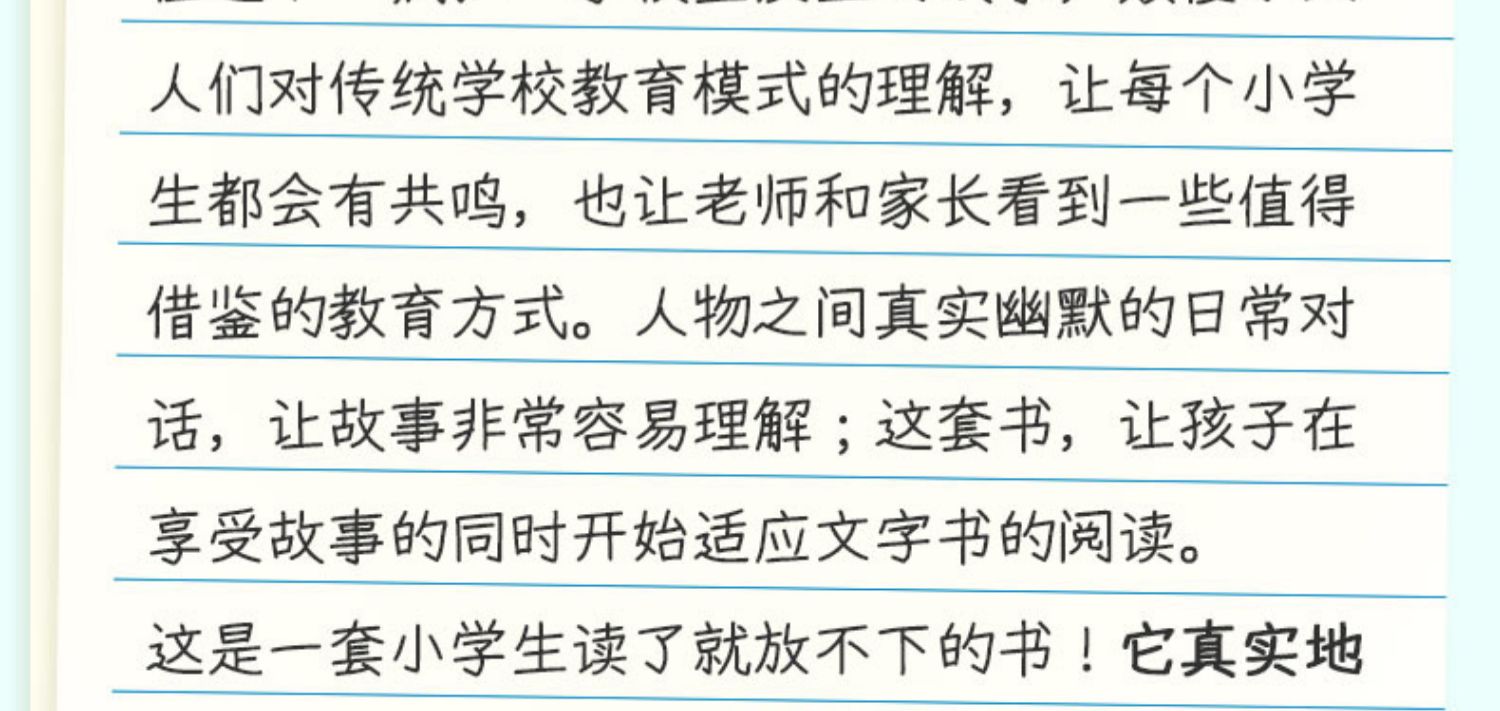 人们对传统学校教育模式的理解，让每个小学
生都会有共鸣，也让老师和家长看到一些值得
借鉴的教育方式。人物之间真实幽默的日常对
话，让故事非常容易理解；这套书，让孩子在
享受故事的同时开始适应文字书的阅读。
这是一套小学生读了就放不下的书！它真实地